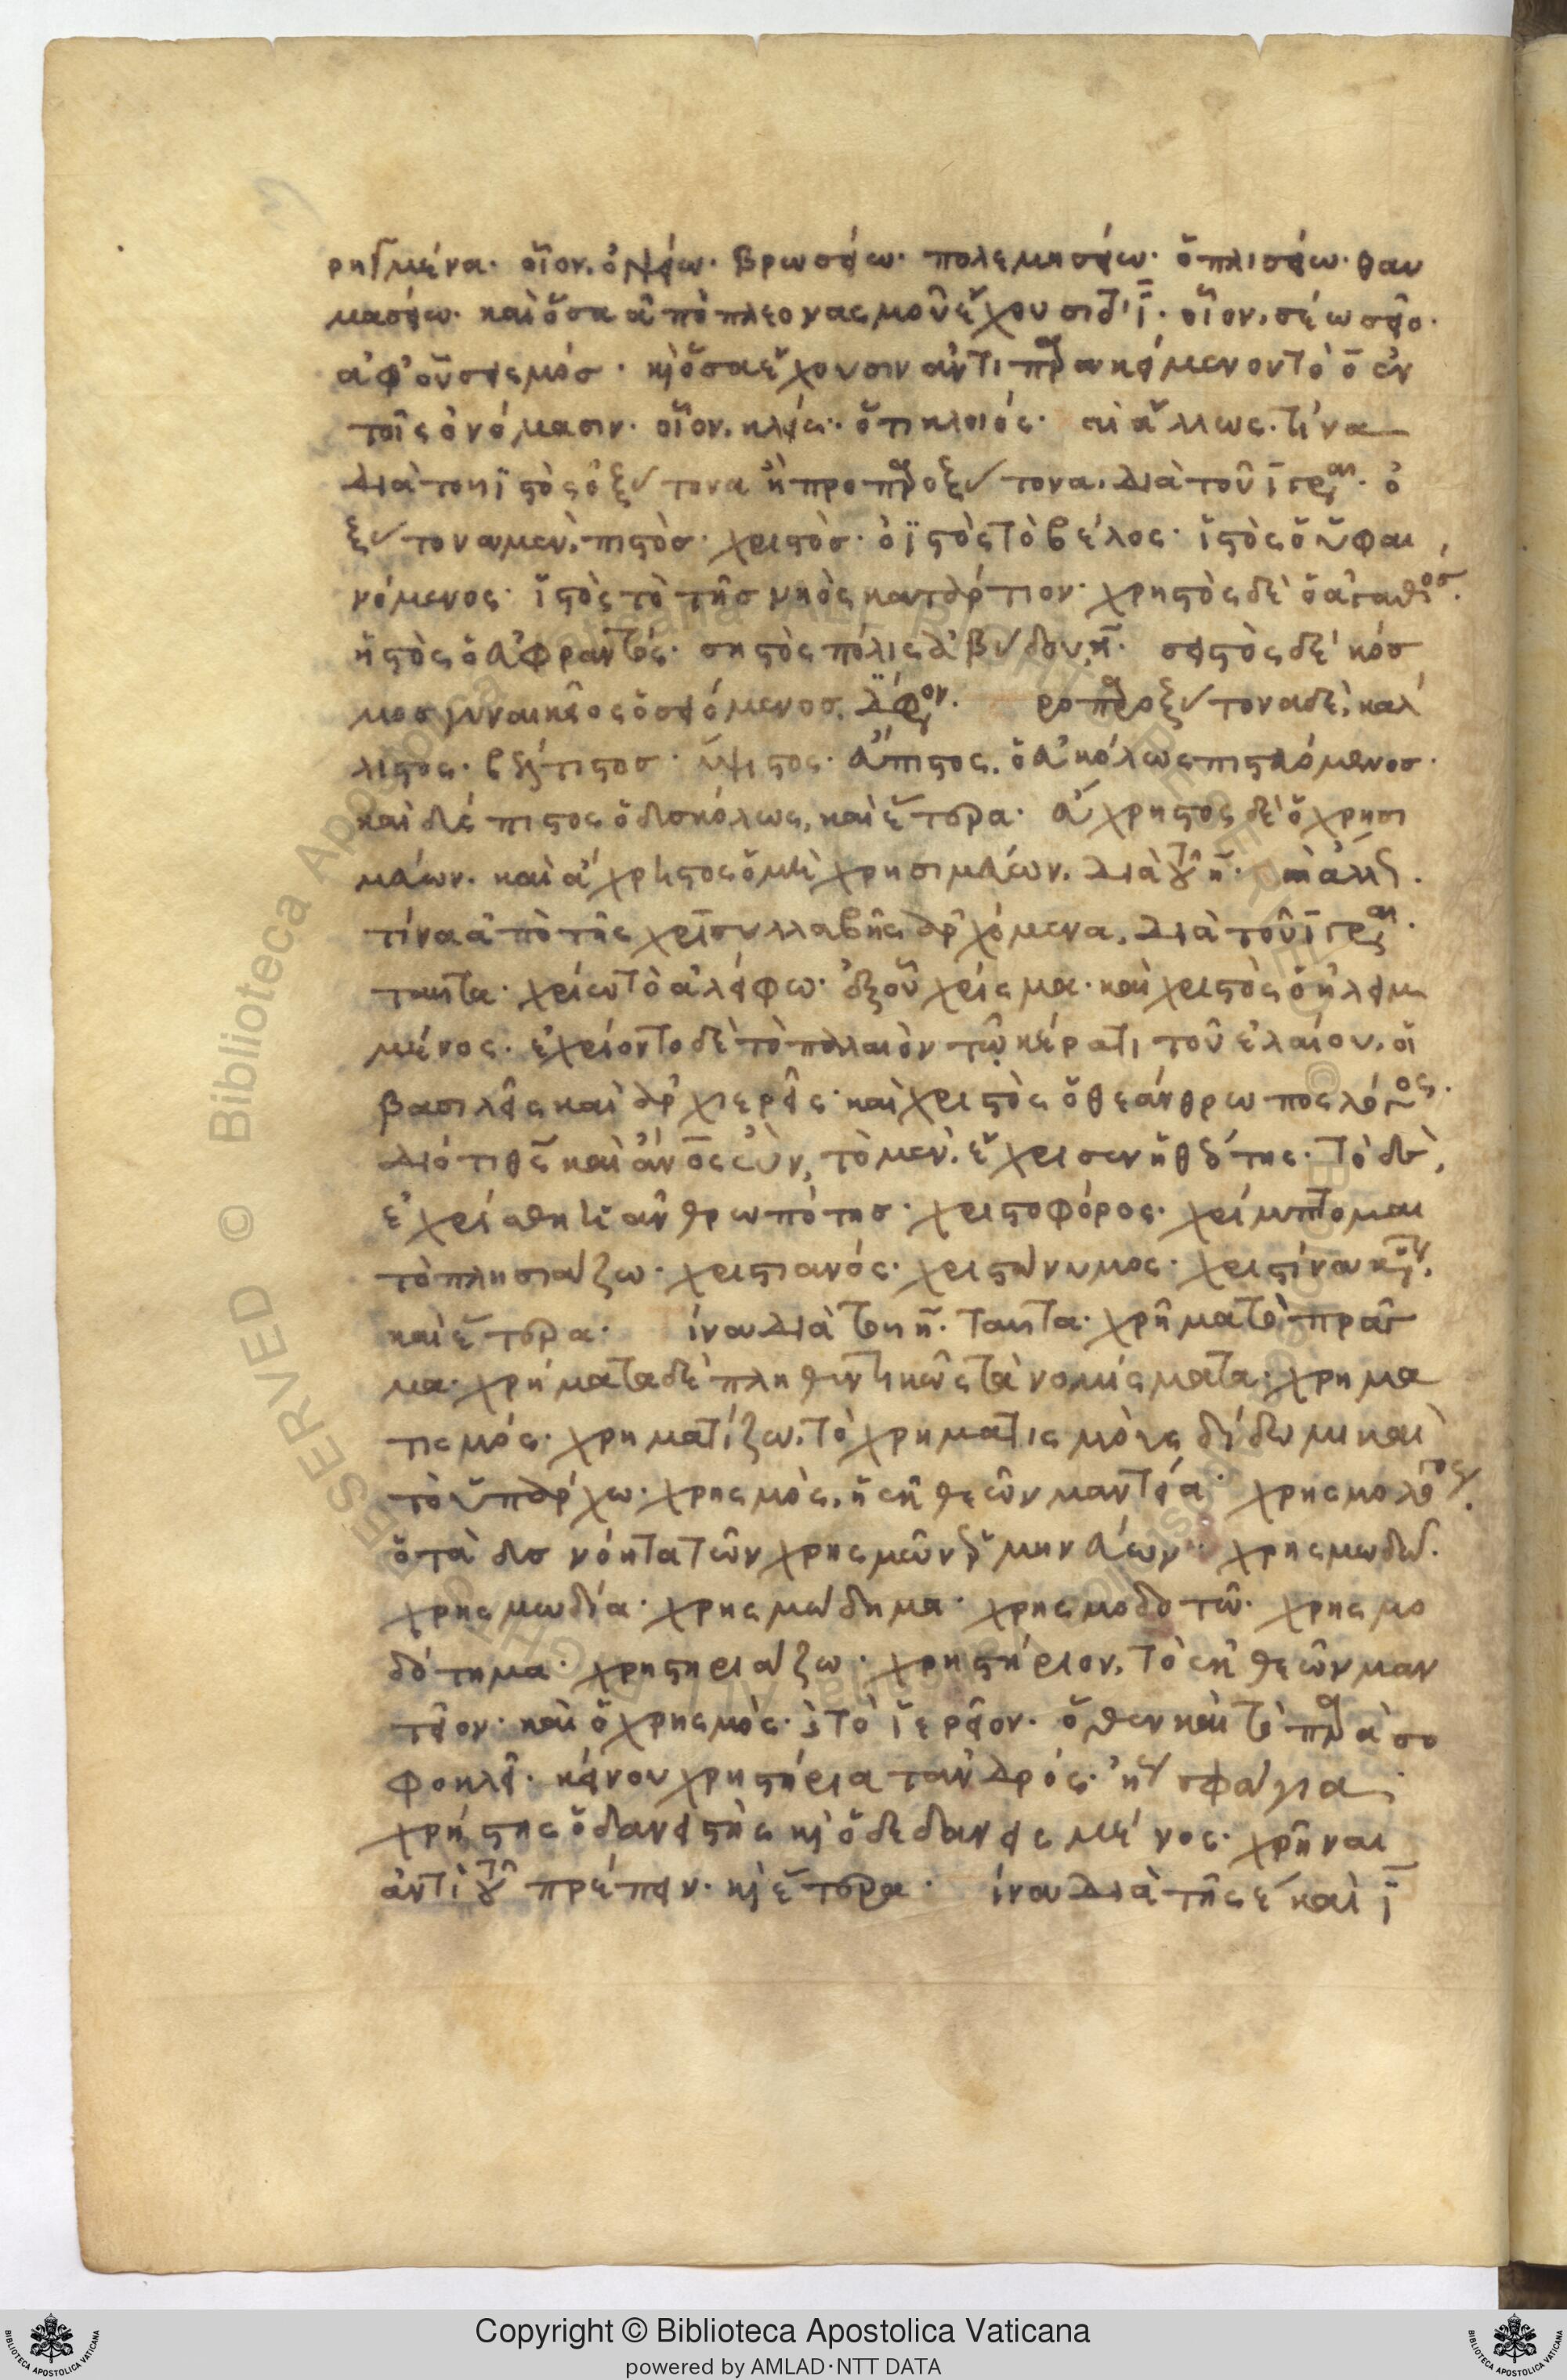 ρημένα· οἷον, ὀψείω· βρωσείω· πολεμησείω· ὁπλισείω· θαυ
μασείω· καὶ ὅσα ἀπὸ πλεονασμοῦ ἔχουσι τ ῑ· οἷον, σέω σείο·
ἀφ' οὗ σεισμόσ· κ ὅσα ἔχουσιν ἀντιπαρακείμενον τὸ ο ἐν
τοῖς ὀνόμασιν· οἷον, κλείω· ὅτι κλοιός· αὶ ἄλλως· τίνα
διὰ τοῦ ϊστὸς ὀξύτονα ἢ προπαροξύτονα, διὰ τοῦ ῑ γρ· ὀ
ξύτονα μεν, πιστὸσ· χριστὸσ· ὀϊστὸς τὸ βέλος· ἱστὸς ὁ ὑφαι
νόμενος· ἱστὸς τὸ τῆσ νηὸς κατάρτιον· χρηστὸς δὲ ὁ ἀγαθοσ·
σηστὸς πόλις ἀβύδου, η· σειστὸς δὲ κόσ
μοσ γυναικεῖος ὁ σειόμενοσ, ροπαροξύτονα δὲ, καλ
λιστος· βέλτιστοσ· ὕψιστος· ἄπιστος, ὁ ἀκόλως πιστευόμενοσ·
καὶ δύσπιστος ὁ δυσκόλως, καὶ ἕτερα· εὔχρηστος δὲ ὁ χρησι
μεύων· καὶ ἄχρηστος ὁ μὴ χρησιμεύων, διὰ τοῦ η· αὶ ἄλλως·
τίνα ἀπὸ τῆς χρι συλλαβῆς ἀρχόμενα, διὰ τοῦ ῑ γρ·
ταῦτα· χρίω τὸ ἀλείφω· ἐξ οὗ χρίσμα· καὶ χριστὸς ὁ ἠλειμ
μένος· ἐχρίοντο δὲ τὸ παλαιὸν τῷ κέρατι τοῦ ἐλαίου, οἱ
βασιλεῖς καὶ ἀρχιερεῖς· καὶ χριστὸς ὁ θεάνθρωπος λόγος·
διότι θς καὶ ἄνος ὢν, τὸ μεν, ἔχρισεν ἡ θεότης· τὸ δὲ,
ἐχρίσθη ἡ ἀνθρωπότησ· χριστοφόρος· χρίμπτομαι
τὸ πλησιάζω· χριστιανός· χριστώνυμος· χριστίνα
καὶ ἕτερα· ίνα διὰ του η· ταῦτα· χρῆμα τὸ πρᾶγ
μα· χρήματα δὲ πληθυντικῶς τὰ νομίσματα· χρημα
τισμός· χρηματίζω, τὸ χρηματισμοὺς δίδωμι καὶ
τὸ ὑπάρχω· χρησμὸς, ἡ ἐκ θεῶν μαντεία· χρησμολόγος,
ὁ τὰ δυσνόητα τῶν χρησμῶν ἑρμηνεύων· χρησμωδῶ·
χρησμωδία· χρησμώδημα· χρησμοδοτῶ· χρησμο
δότημα· χρηστηριάζω· χρηστήριον, τὸ ἐκ θεῶν μαν
τεῖον· καὶ ὁ χρησμὸς· τὸ ἱερεῖον· ὅθεν καὶ τὸ παρὰ σο
φοκλεῖ· κείνου χρηστήρια τἀνδρός· σφάγια
χρήστης ὁ δανειστὴς κ ὁ δεδανεισμένος· χρῆναι
ἀντὶ τοῦ πρέπειν· κ ἕτερα· ίνα διὰ τῆς ε καὶ ῑ
Copyright © Biblioteca Apostolica Vaticana
powered by AMLAD·NTT DATA